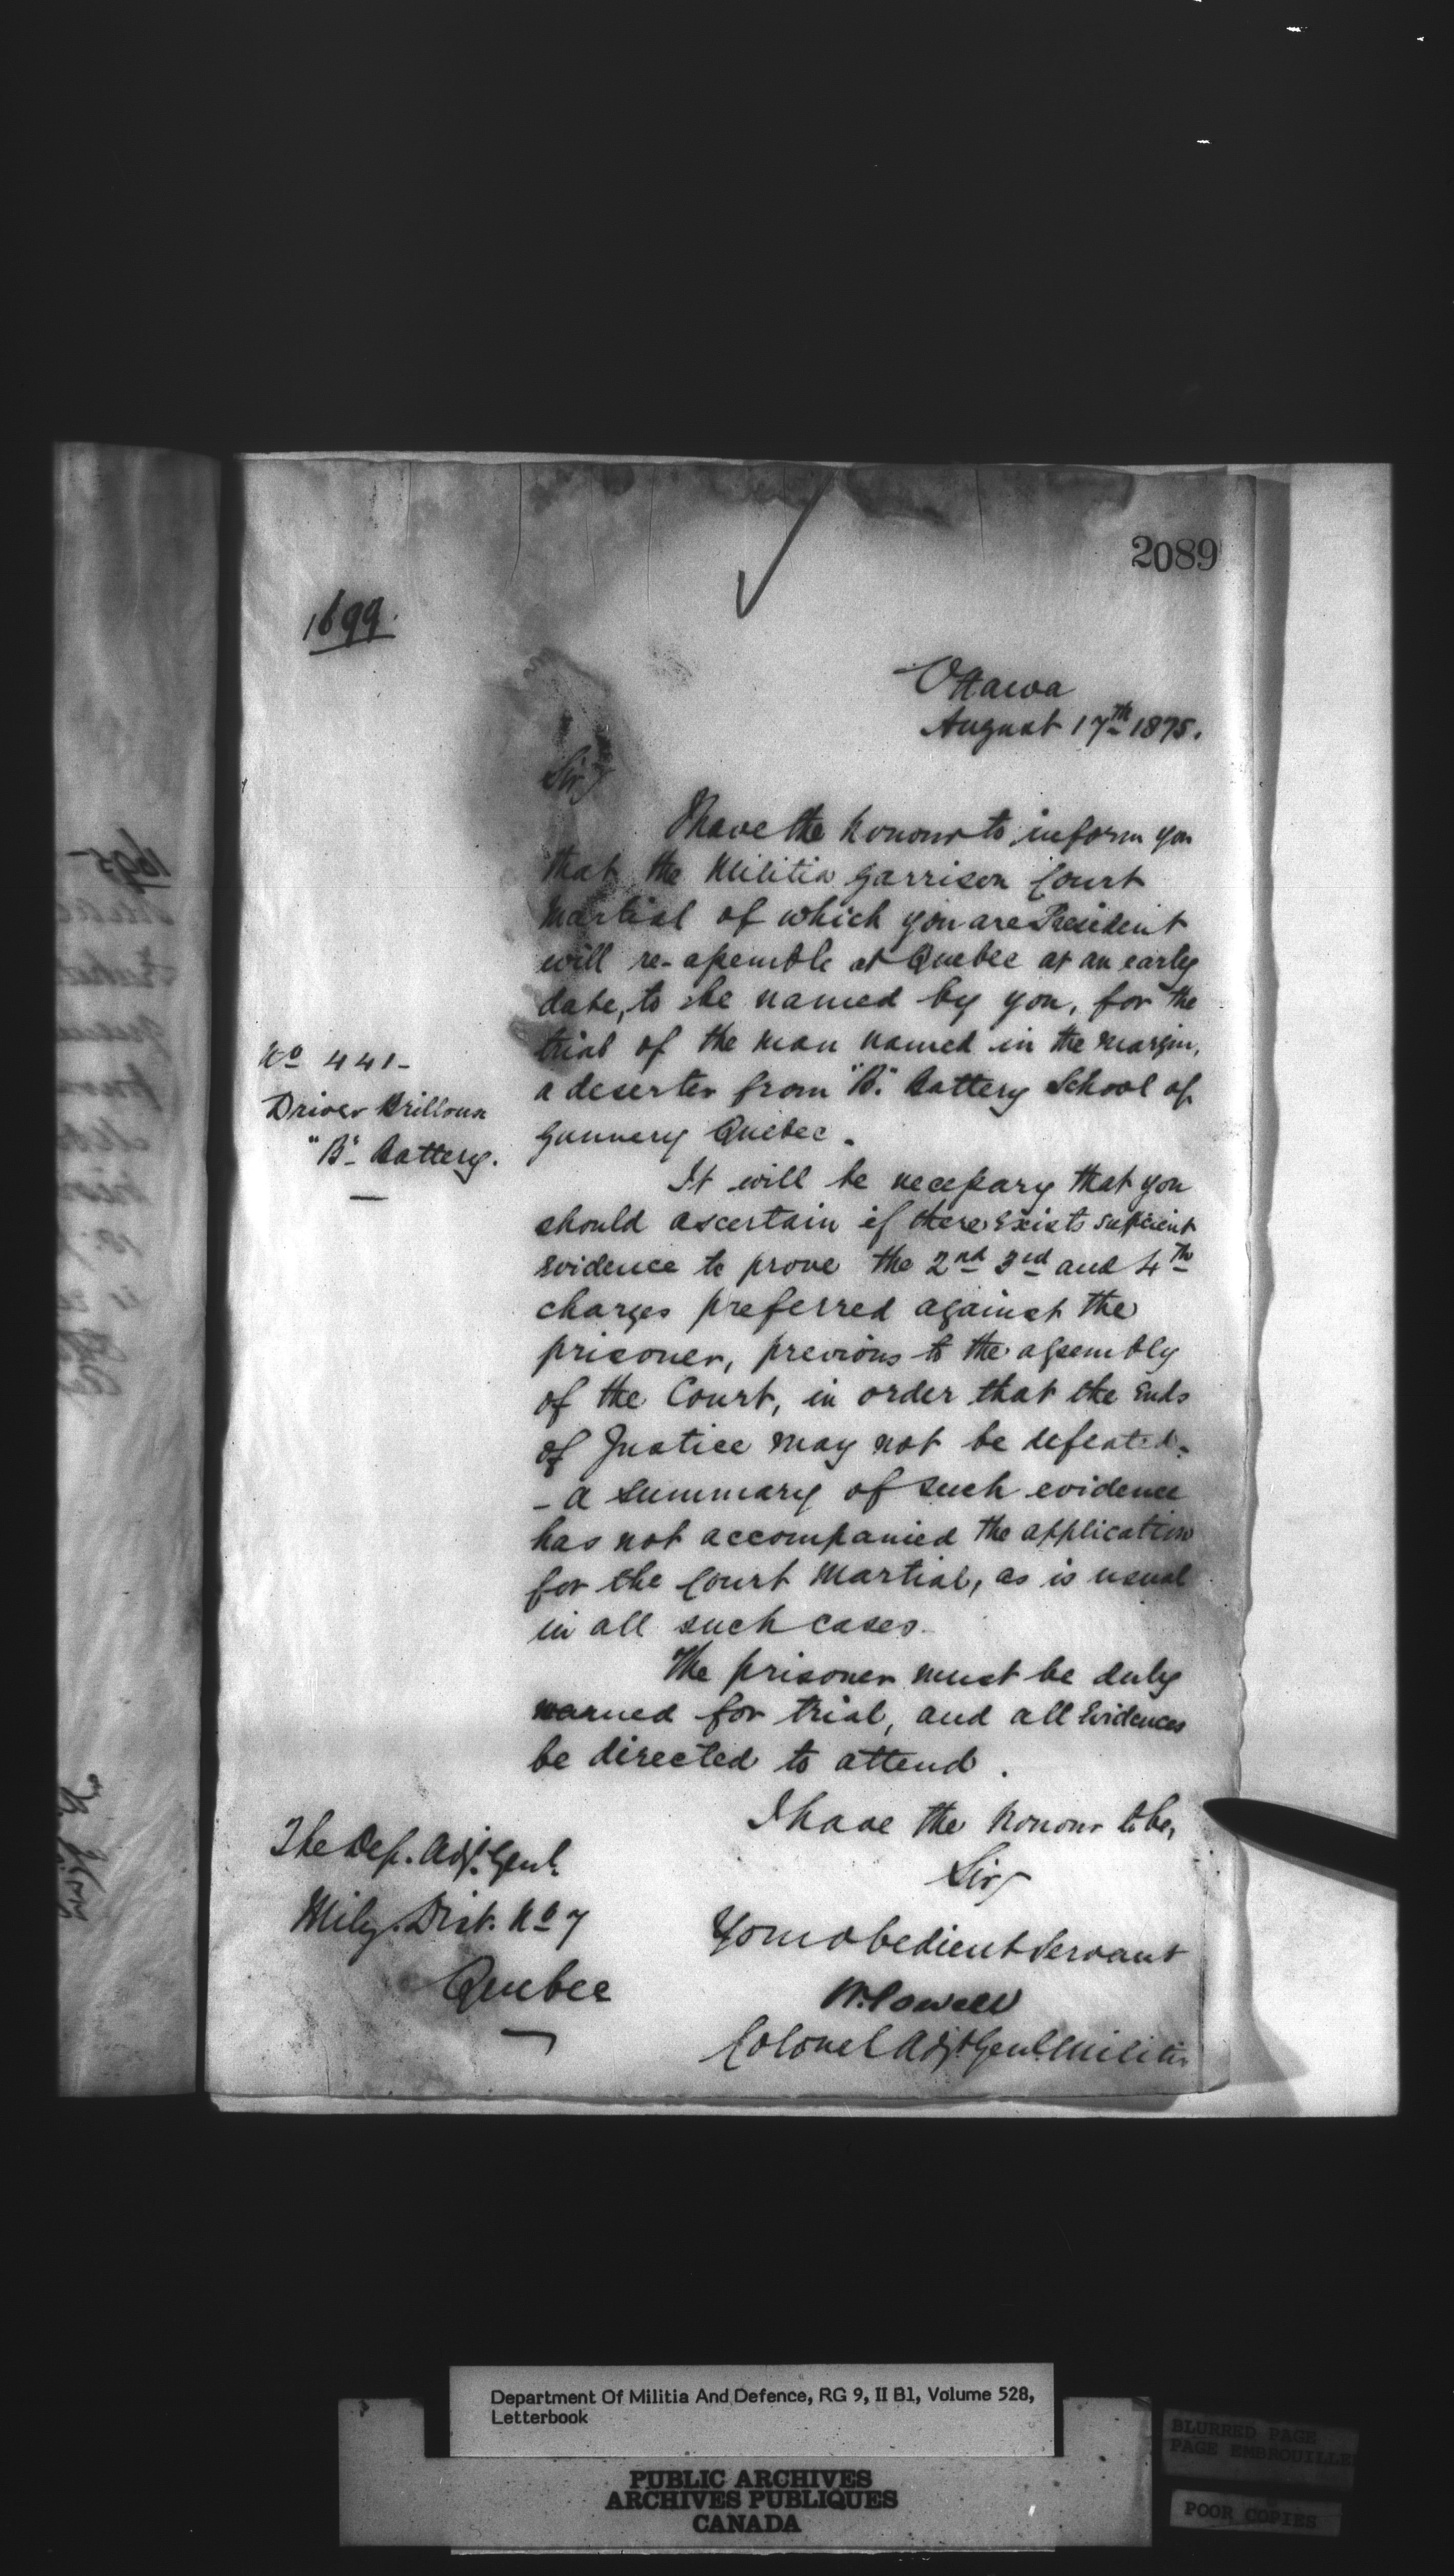 2089
1699.
Ottawa
August 17th 1875.
Sir,
I have the honour to inform you
that the Militia Garrison Court
Martial of which you are President
will re-assemble at Quebec at an early
date, to be named by you, for the
trial of the man named in the margin,
a deserter from "B" Battery School of
Gunnery Quebec.
No 441-
Driver Brilloux
"B" Battery.
It will be necessary that you
should ascertain if there exists sufficient
evidence to prove the 2nd 3rd and 4th
charges preferred against the
prisoner, previous to the assembly
of the Court, in order that the ends
of Justice may not be defeated.
- a summary of such evidence
has not accompanied the application
for the Court Martial, as is usual
in all such cases.
The prisoner must be duly
warned for trial, and all Evidences
be directed to attend.
I have the honour to be,
Sir,
Your obedient Servant
W. Powell
Colonel Adjt. Genl. Militia
The Dep. Adj. Genl.
Mily. Dist. No 7
Quebec
1695
Department Of Militia And Defence, RG 9, II B1, Volume 528,
Letterbook
PUBLIC ARCHIVES
ARCHIVES PUBLIQUES
CANADA
BLURRED PAGE
PAGE EMBROUILLE
POOR COPIES